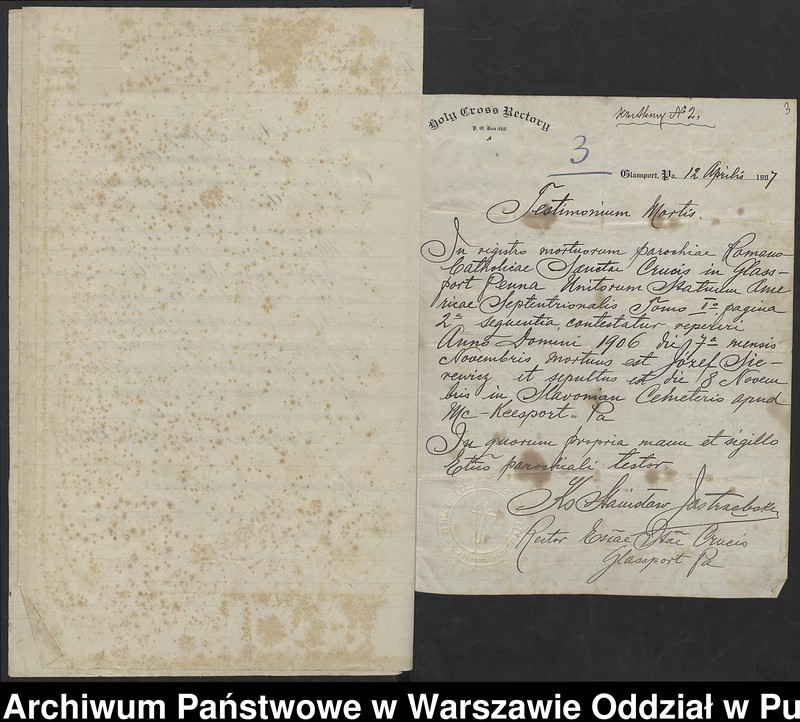 Holy Cross Rectory
P. O. Box
№ 2.
3
3
Glassport, Pa. 12 Aprilis 1907
Testimonium Mortis.
In registro mortuorum parochiae Romano-
Catholicae Sanctae Crucis in Glass-
port Penna Unitorum Statuum Ame
ricae Septentrionalis Tomo Iº pagina
2ª sequentia contestatur reperiri
Anno Domini 1906 die 7ª mensis
Novembris mortuus est Józef Sie-
rewicz et sepultus est die 8 Novem
bris in Slavonian Cemeteris apud
Mc-Keesport - Pa
In quorum propria manu et sigillo
parochiali testor.
Ks Stanisław Jastrzebski
Rector Crucis
Glassport Pa
Archiwum Państwowe w Warszawie Oddział w Pu